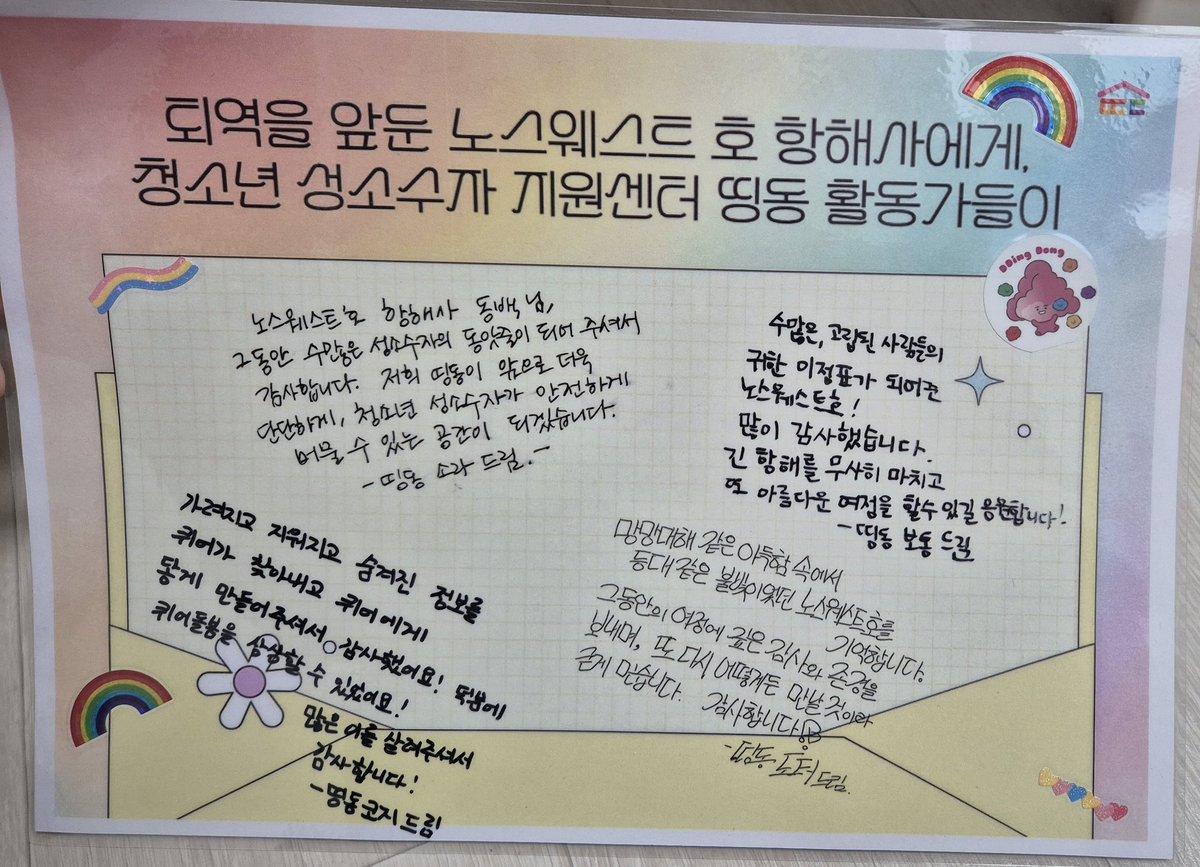 퇴역을 앞둔 노스웨스트 호 항해사에게,
청소년 성소수자 지원센터 띵동 활동가들이
DDing Dong
노스웨스트호 항해사 동백님,
그동안 수많은 성소수자의 동앗줄이 되어 주셔서
감사합니다. 저희 띵동이 앞으로 더욱
단단하게, 청소년 성소수자가 안전하게
머물 수 있는 공간이 되겠습니다.
- 띵동 소라 드림. -
수많은, 고립된 사람들의
귀한 이정표가 되어준
노스웨스트호!
많이 감사했습니다.
긴 항해를 무사히 마치고
또 아름다운 여정을 할수 있길 응원합니다!
- 띵동 보통 드림
가려지고 지워지고 숨겨진 정보를
퀴어가 찾아내고 퀴어에게
닿게 만들어주셔서 감사했어요! 덕분에
퀴어돌봄을 상상할 수 있었어요!
많은 이를 살려주셔서
감사합니다!
- 띵동 코지 드림
망망대해 같은 아득함 속에서
등대 같은 불빛이었던 노스웨스트호를
기억합니다.
그동안의 여정에 깊은 감사와 존경을
보내며, 또 다시 어떻게든 만날 것이라
굳게 믿습니다. 감사합니다
- 띵동 드림.